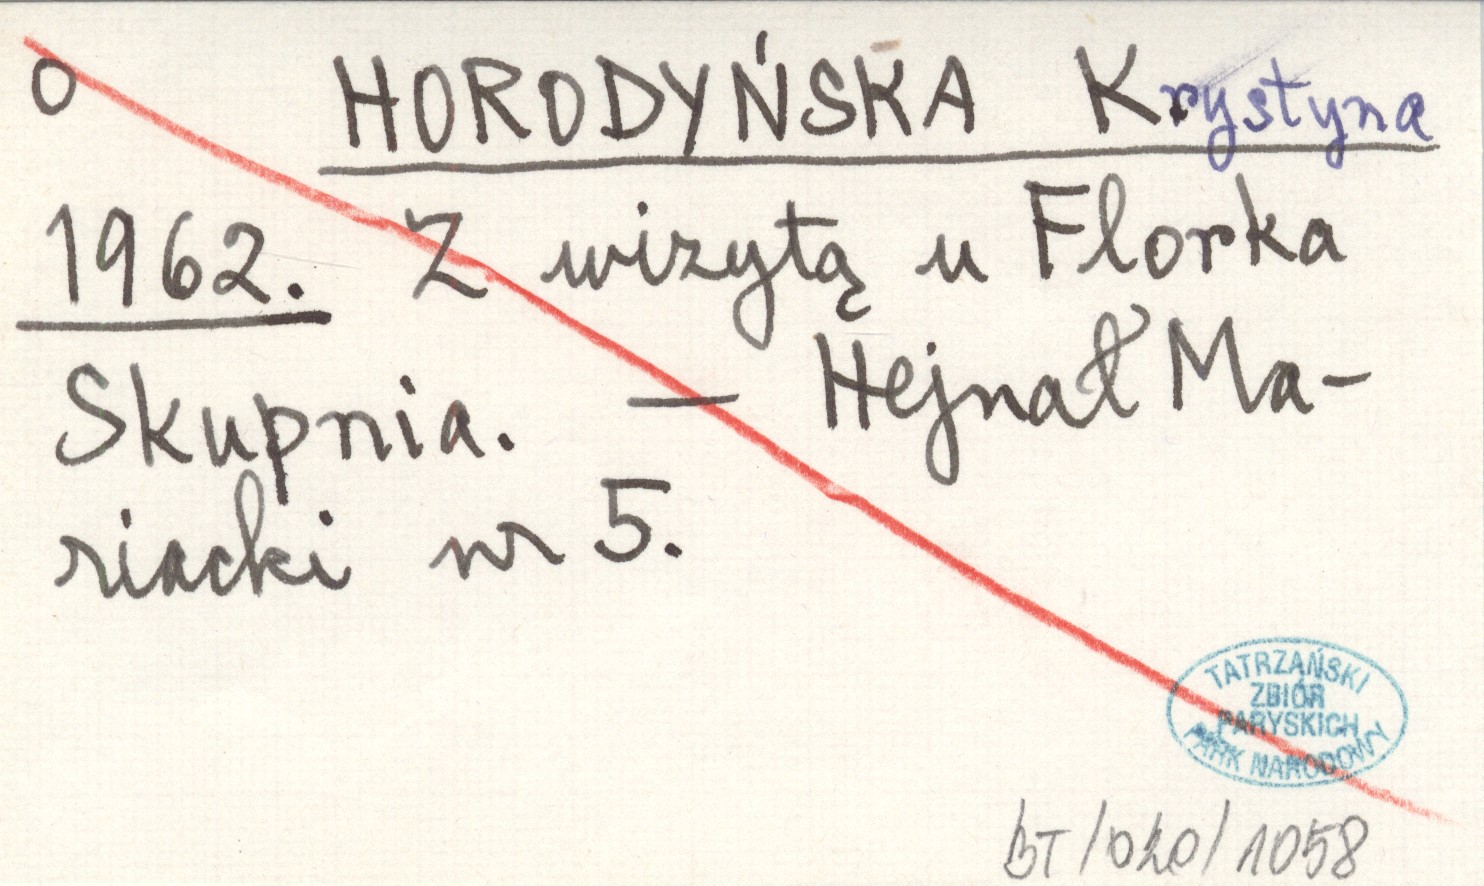 O HORODYŃSKA Krystyna
1962. Z wizytą u Florka
Skupnia. — Hejnał Ma-
riacki nr 5.
TATRZAŃSKI
ZBIÓR
PARYSKICH
PARK NARODOWY
BT/020/1058